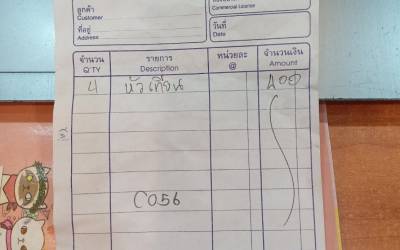 Commercial License
ลูกค้า
Customer
ที่อยู่
Address
วันที่
Date
จำนวน รายการ หน่วยละ จำนวนเงิน
Q'TY Description @ Amount
4 หัวเทียน 400
C056